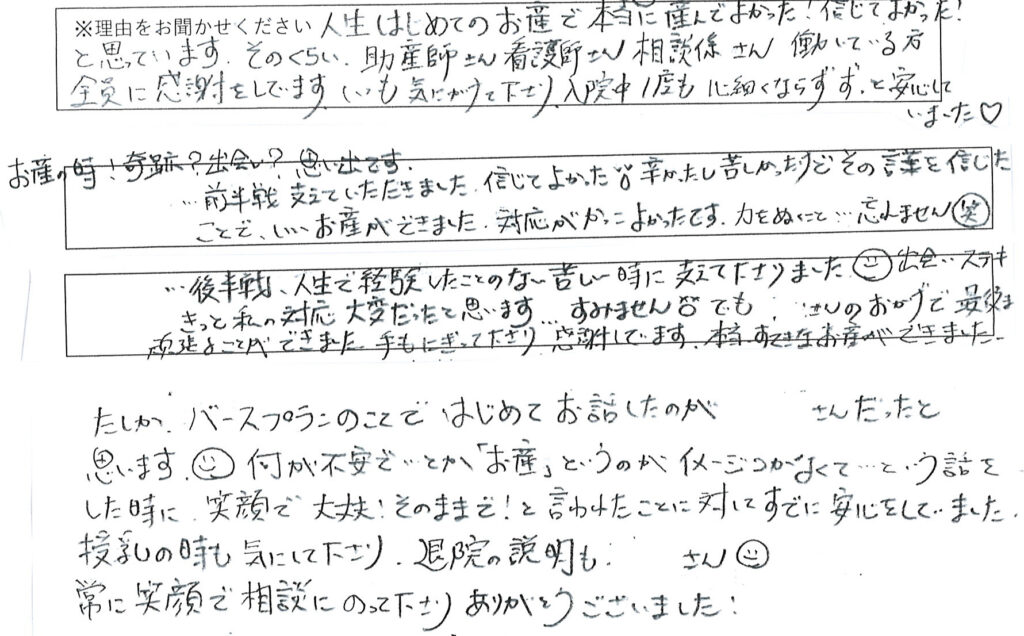 ※理由をお聞かせください 人生はじめてのお産で本当に産んでよかった！信じてよかった！
と思っています。そのくらい、助産師さん看護師さん相談係さん 働いている方
全員に感謝をしています。いつも気にかけて下さり、入院中1度も心細くならずず、と安心して
いました♡
お産の時！奇跡？出会い？思い出です。
…前半戦 支えていただきました。信じてよかった 辛かったし苦しかったけどその言葉を信じた
ことで、いいお産ができました。対応がかっこよかったです。力をぬくこと…忘れません(笑)
…後半戦、人生で経験したことのない苦しい時に支えて下さりました☺ 出会…ステキ
きっと私の対応大変だったと思います…すみません でも、 さんのおかげで最後ま
頑張ることができました。手もにぎって下さり、感謝しています。本当 すてきなお産ができました。
たしか、バースプランのことではじめてお話したのが さんだったと
思います。☺ 何が不安で…とか「お産」というのがイメージつかなくて…という話を
した時に、笑顔で大丈夫！そのままで！と言われたことに対してすでに安心をしていました。
授乳の時も気にして下さり、退院の説明も、 さん☺
常に笑顔で相談にのって下さりありがとうございました！